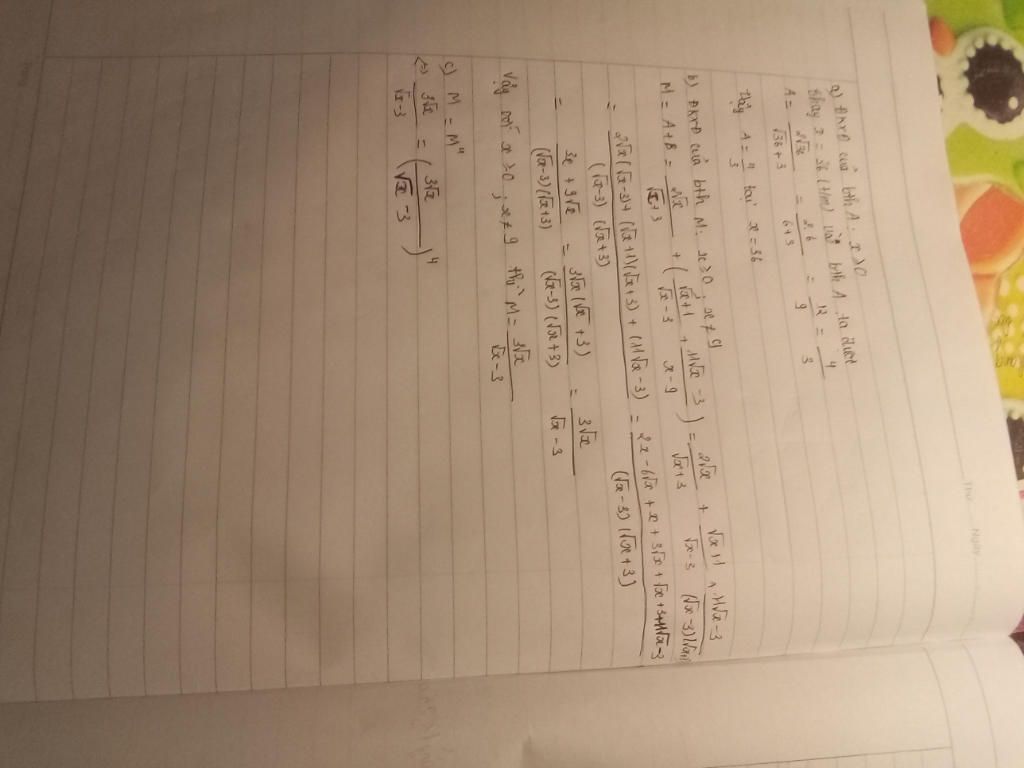 a) ĐKXĐ của bth A: x ≥ 0
Thay x = 36 (t/m) vào bth A ta được
A = 2√36 / (√36 + 3) = 2.6 / (6+3) = 12/9 = 4/3
Vậy A = 4/3 tại x = 36
b) ĐKXĐ của bth M: x ≥ 0 ; x ≠ 9
M = A + B = 2√x / (√x + 3) + ( (√x + 1) / (√x - 3) + (11√x - 3) / (x - 9) ) = 2√x / (√x + 3) + (√x + 1) / (√x - 3) + (11√x - 3) / ((√x - 3)(√x + 3))
= (2√x(√x - 3) + (√x + 1)(√x + 3) + (11√x - 3)) / ((√x - 3)(√x + 3)) = (2x - 6√x + x + 3√x + √x + 3 + 11√x - 3) / ((√x - 3)(√x + 3))
= (3x + 9√x) / ((√x - 3)(√x + 3)) = 3√x(√x + 3) / ((√x - 3)(√x + 3)) = 3√x / (√x - 3)
Vậy với x ≥ 0 ; x ≠ 9 thì M = 3√x / (√x - 3)
c) M = M⁴
(=) 3√x / (√x - 3) = ( 3√x / (√x - 3) )⁴